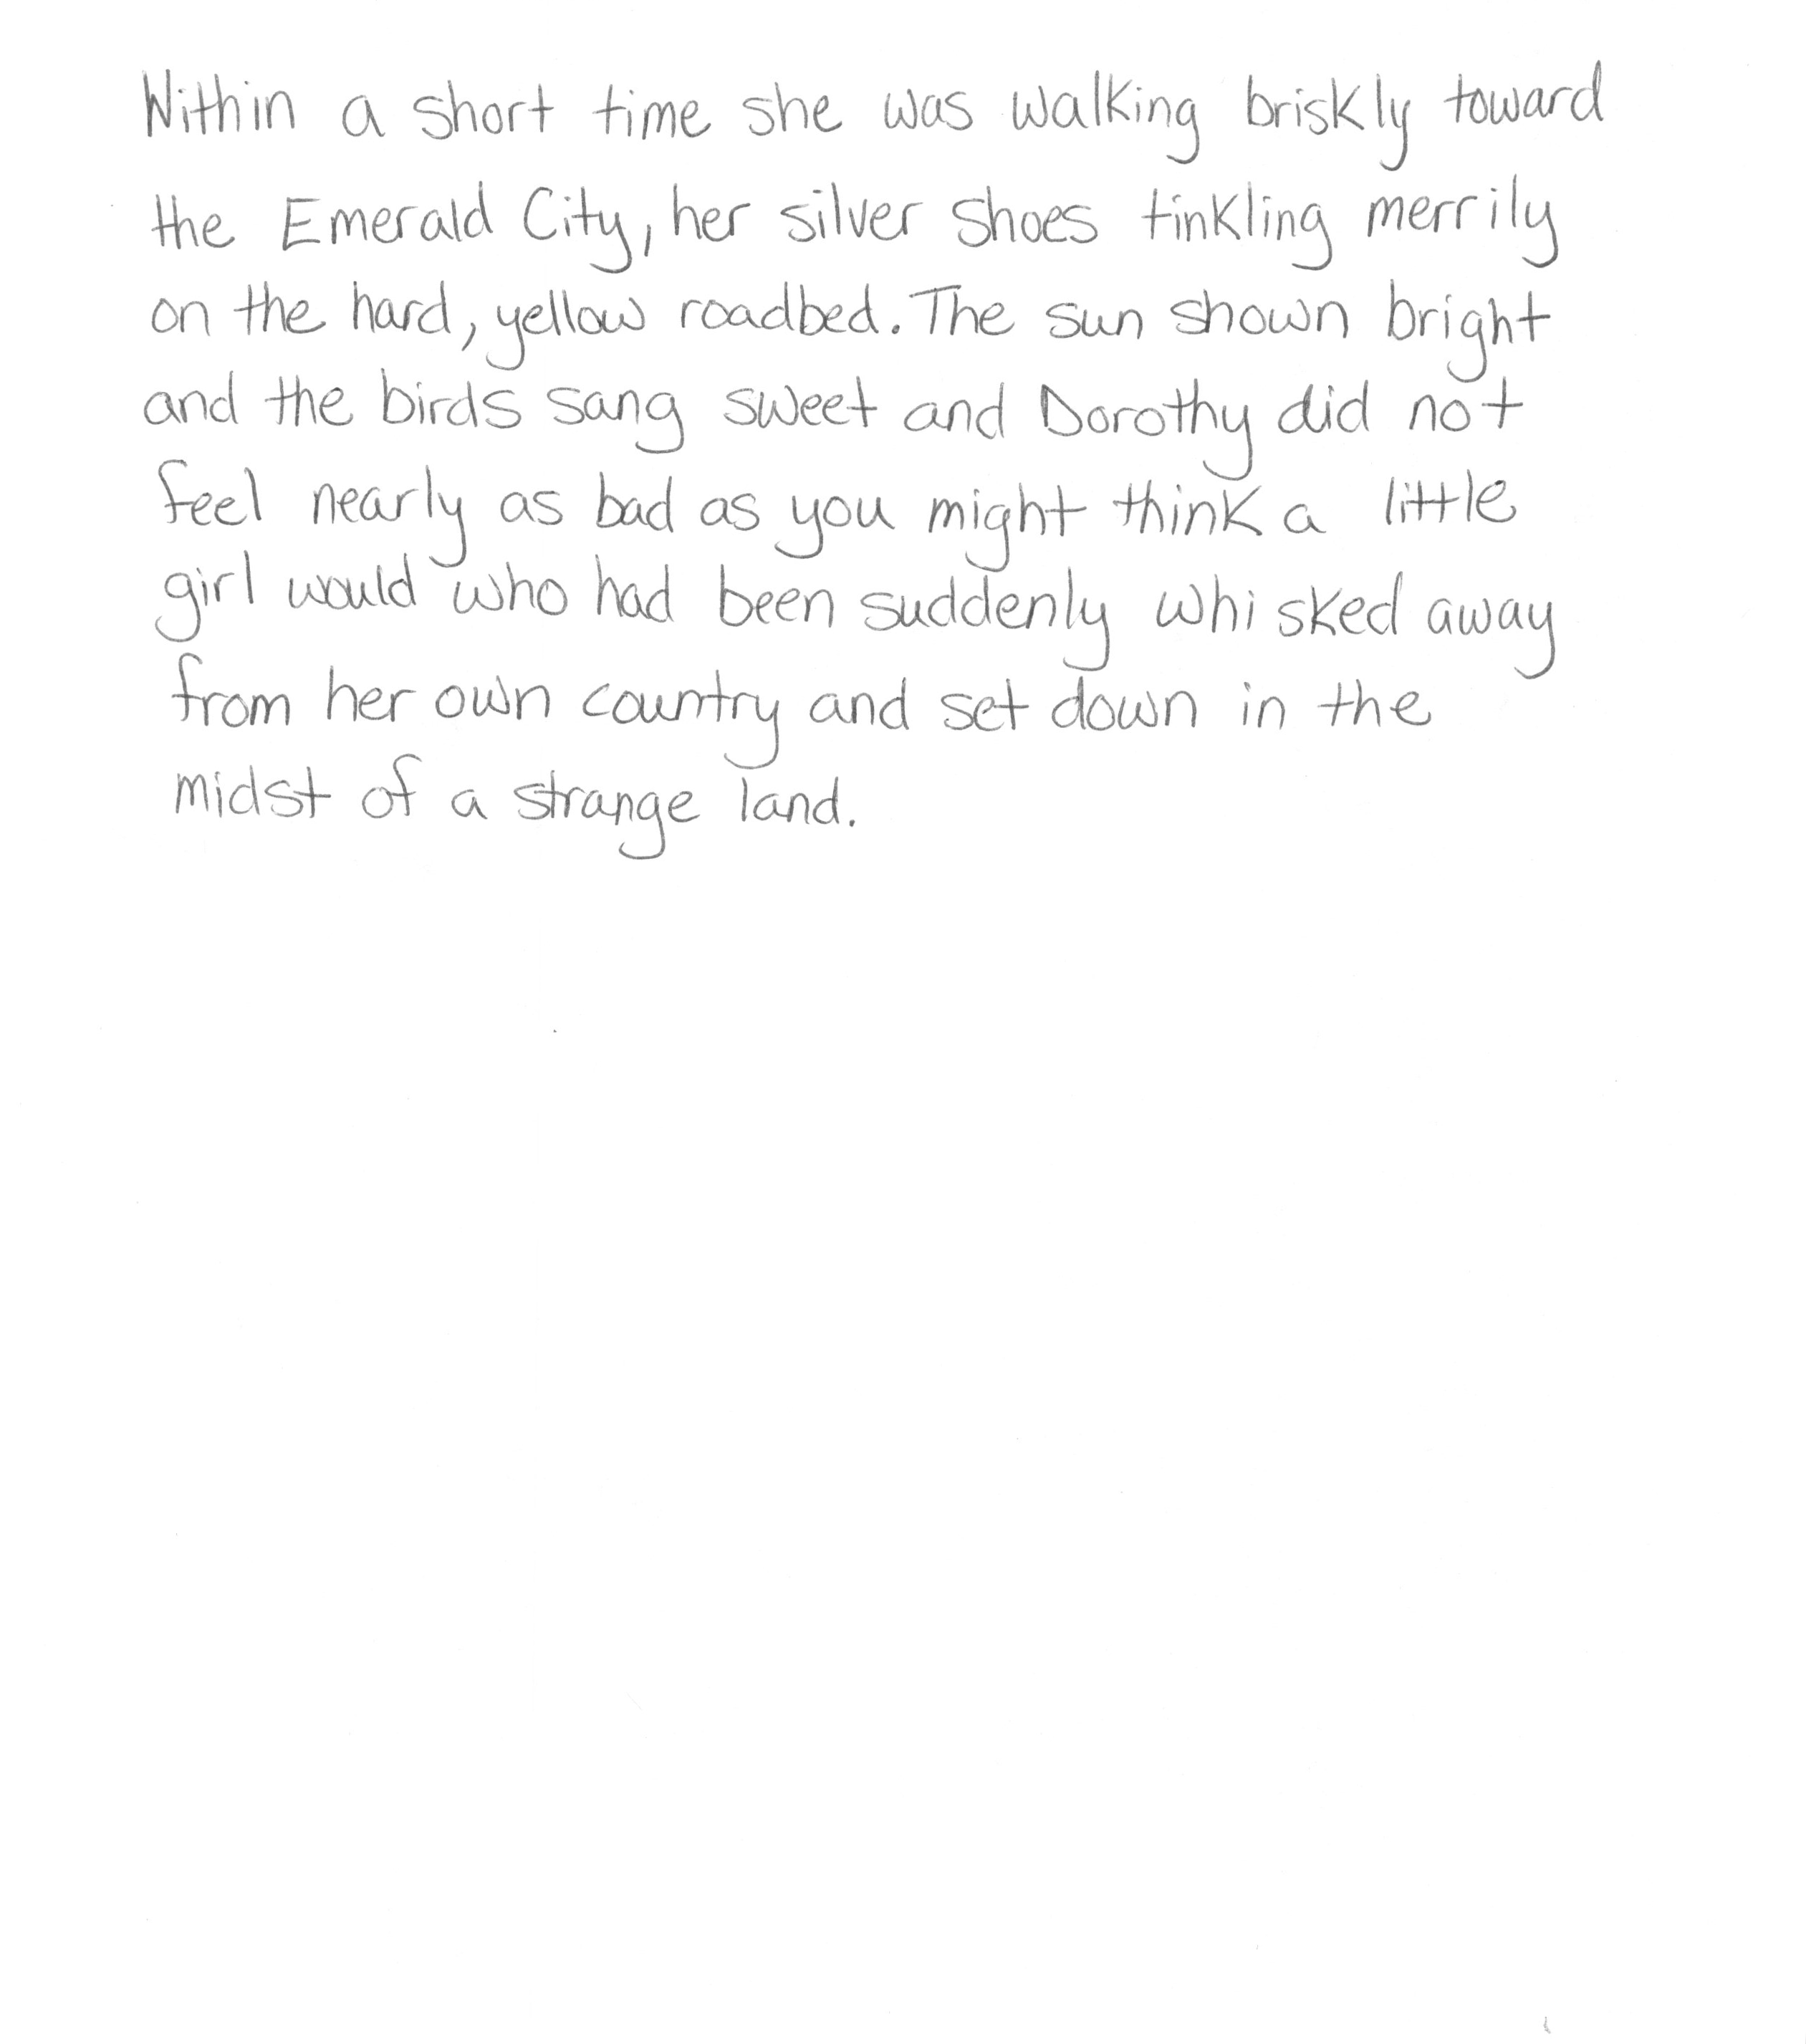 Within a short time she was walking briskly toward
the Emerald City, her silver shoes tinkling merrily
on the hard, yellow roadbed. The sun shown bright
and the birds sang sweet and Dorothy did not
feel nearly as bad as you might think a little
girl would who had been suddenly whisked away
from her own country and set down in the
midst of a strange land.